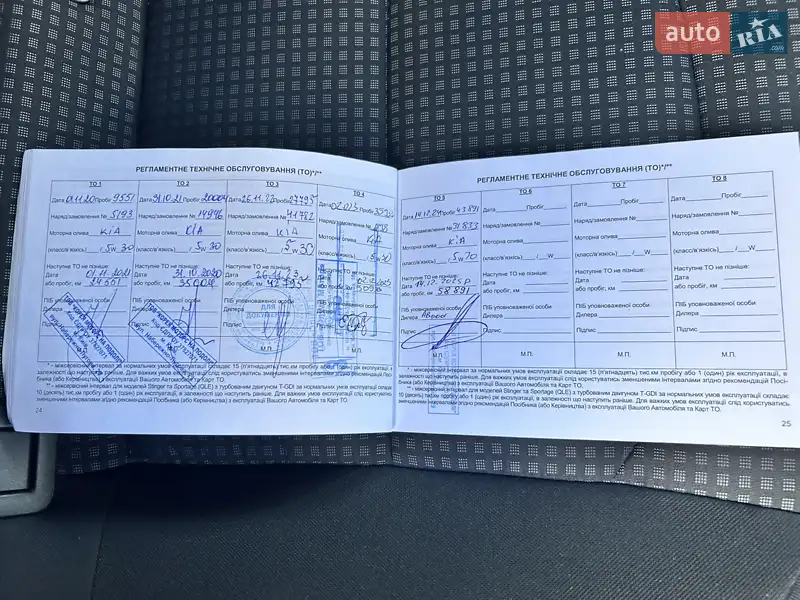 auto RIA.com
РЕГЛАМЕНТНЕ ТЕХНІЧНЕ ОБСЛУГОВУВАННЯ (ТО)*/**
ТО 1
Дата 01.11.20 Пробіг 9551
Наряд/замовлення № 5193
Моторна олива
KIA
(класс/в'язкість) , 5W30
Наступне ТО не пізніше:
Дата 01.11.2021
або пробіг, км 24551
ПІБ уповноваженої особи
Дилера
Підпис
ТО 2
Дата 31.10.21 Пробіг 20004
Наряд/замовлення № 14946
Моторна олива
KIA
(класс/в'язкість) , 5W30
Наступне ТО не пізніше:
Дата
або пробіг, км 35004
ПІБ уповноваженої особи
Дилера
Підпис
ТО 3
Дата 26.11.22 Пробіг 27795
Наряд/замовлення № 41782
Моторна олива
KIA
(класс/в'язкість) 5W30
Наступне ТО не пізніше:
Дата 26.11.23
або пробіг, км 42795
ПІБ уповноваженої особи
Дилера
Підпис
М.П.
ТО 4
Дата Пробіг
Наряд/замовлення №
Моторна олива
KIA
(класс/в'язкість) 5W30
Наступне ТО не пізніше:
Дата
або пробіг, км
ПІБ уповноваженої особи
Дилера
Підпис
М.П.
* - міжсервісний інтервал за нормальних умов експлуатації складає 15 (п'ятнадцять) тис.км пробігу або 1 (один) рік експлуатації, в
залежності що настане раніше. Для важких умов експлуатації слід користуватись зменшеними інтервалами згідно рекомендацій Посіб-
ника (або Керівництва) з експлуатації Вашого Автомобіля та Карт ТО.
** - міжсервісний інтервал для моделей Stinger та Sportage (QLE) з турбованим двигуном T-GDI за нормальних умов експлуатації складає
10 (десять) тис.км пробігу або 1 (один) рік експлуатації, в залежності що настане раніше. Для важких умов експлуатації слід користуватись
зменшеними інтервалами згідно рекомендацій Посібника (або Керівництва) з експлуатації Вашого Автомобіля та Карт ТО.
24
РЕГЛАМЕНТНЕ ТЕХНІЧНЕ ОБСЛУГОВУВАННЯ (ТО)*/**
ТО 5
Дата 14.12.24 Пробіг 43891
Наряд/замовлення № 31833
Моторна олива
KIA
(класс/в'язкість) , 5W70
Наступне ТО не пізніше:
Дата 14.12.2025р
або пробіг, км 58891
ПІБ уповноваженої особи
Дилера
Підпис
М.П.
ТО 6
Дата Пробіг
Наряд/замовлення №
Моторна олива
(класс/в'язкість) , W
Наступне ТО не пізніше:
Дата
або пробіг, км
ПІБ уповноваженої особи
Дилера
Підпис
М.П.
ТО 7
Дата Пробіг
Наряд/замовлення №
Моторна олива
(класс/в'язкість) , W
Наступне ТО не пізніше:
Дата
або пробіг, км
ПІБ уповноваженої особи
Дилера
Підпис
М.П.
ТО 8
Дата Пробіг
Наряд/замовлення №
Моторна олива
(класс/в'язкість) , W
Наступне ТО не пізніше:
Дата
або пробіг, км
ПІБ уповноваженої особи
Дилера
Підпис
М.П.
* - міжсервісний інтервал за нормальних умов експлуатації складає 15 (п'ятнадцять) тис.км пробігу або 1 (один) рік експлуатації, в
залежності що настане раніше. Для важких умов експлуатації слід користуватись зменшеними інтервалами згідно рекомендацій Посі-
бника (або Керівництва) з експлуатації Вашого Автомобіля та Карт ТО.
** - міжсервісний інтервал для моделей Stinger та Sportage (QLE) з турбованим двигуном T-GDI за нормальних умов експлуатації складає:
10 (десять) тис.км пробігу або 1 (один) рік експлуатації, в залежності що настане раніше. Для важких умов експлуатації слід користуватись
зменшеними інтервалами згідно рекомендацій Посібника (або Керівництва) з експлуатації Вашого Автомобіля та Карт ТО.
25